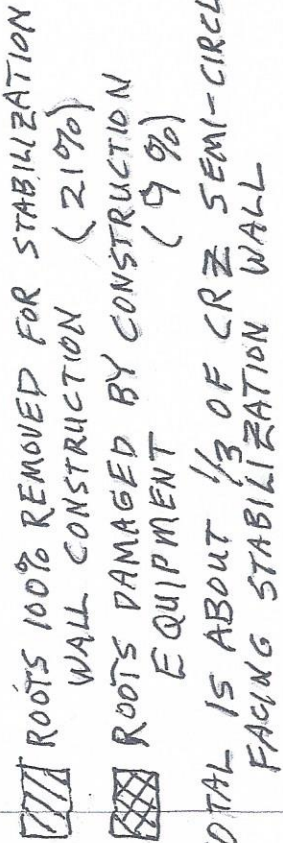 ROOTS 100% REMOVED FOR STABILIZATION
WALL CONSTRUCTION (21%)
ROOTS DAMAGED BY CONSTRUCTION
EQUIPMENT (9%)
OTAL IS ABOUT 1/3 OF CRZ SEMI-CIRCL
FACING STABILIZATION WALL